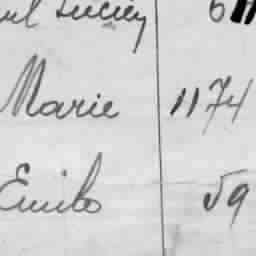 Lucien 6
Marie 1174
Emile 59